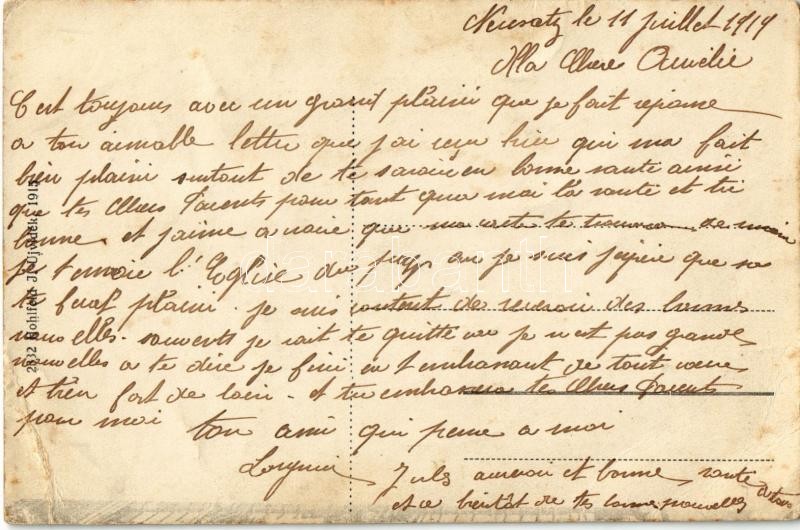 Neusatz le 11 juillet 1919
Ma Chere Aurélie
C'est toujours avec un grand plaisir que je fait reponse
a ton aimable lettre que j'ai reçu hier qui ma fait
bien plaisir surtout de te savoir en bonne sante ainsi
que tes Chers Parents pour tant qua moi la sante et tri
bonne. et j'aime a voire que ma carte te trouvera de meme
je t'envoie l'Eglise du pays ou je suis j'espere que sa
te feras plaisir. je suis content de recevoir des bonnes
nouvelles. souvents je vait te quitte car je n'est pas grande
nouvelles a te dire je fini en t'embrassant de tout coeur
et bien fort de loin. et tu embrassera tes Chers Parents
pour moi ton ami qui pense a moi
Jules aurevoir et bonne sante a tous
et a bientôt de tes bonne nouvelles
2332 Kohlfeld J. Ujvidék 1915
darabanth